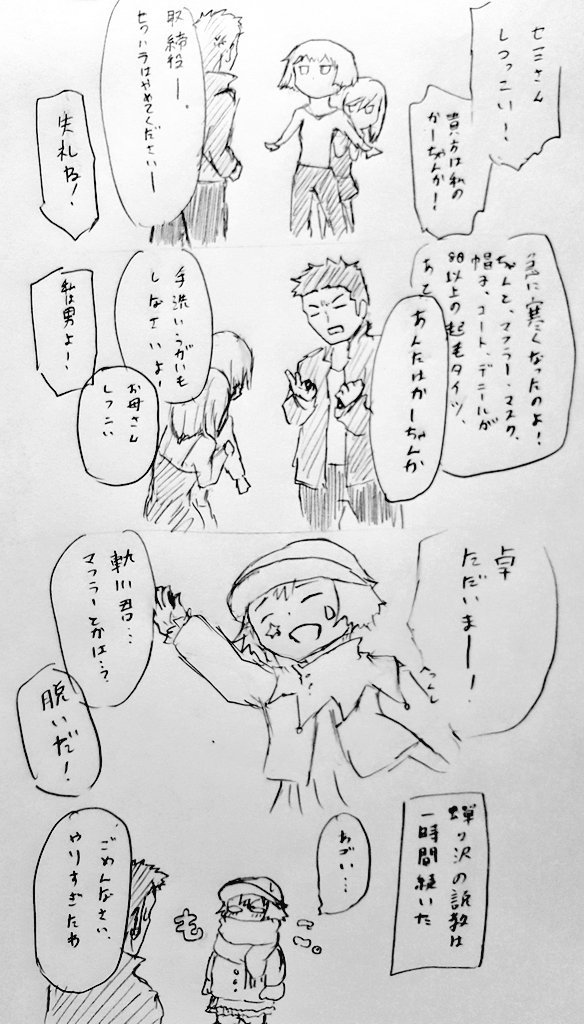 セミさん
しつこい!
貴方は私の
かーちゃんか!
取締役ー。
セクハラはやめてくださいー
失礼ね!
急に寒くなったのよ!
ちゃんと、マフラー、マスク、
帽子、コート、デニールが
80以上の起毛タイツ、
あと
あんたはかーちゃんか
手洗いうがいも
しなさいよ!
お母さん
しつこい
私は男よ!
卓
ただいまー!
軌川君…
マフラーとかは…?
脱いだ!
蝉ヶ沢の説教は
一時間続いた
あづい…
も
ごめんなさい、
やりすぎたわ